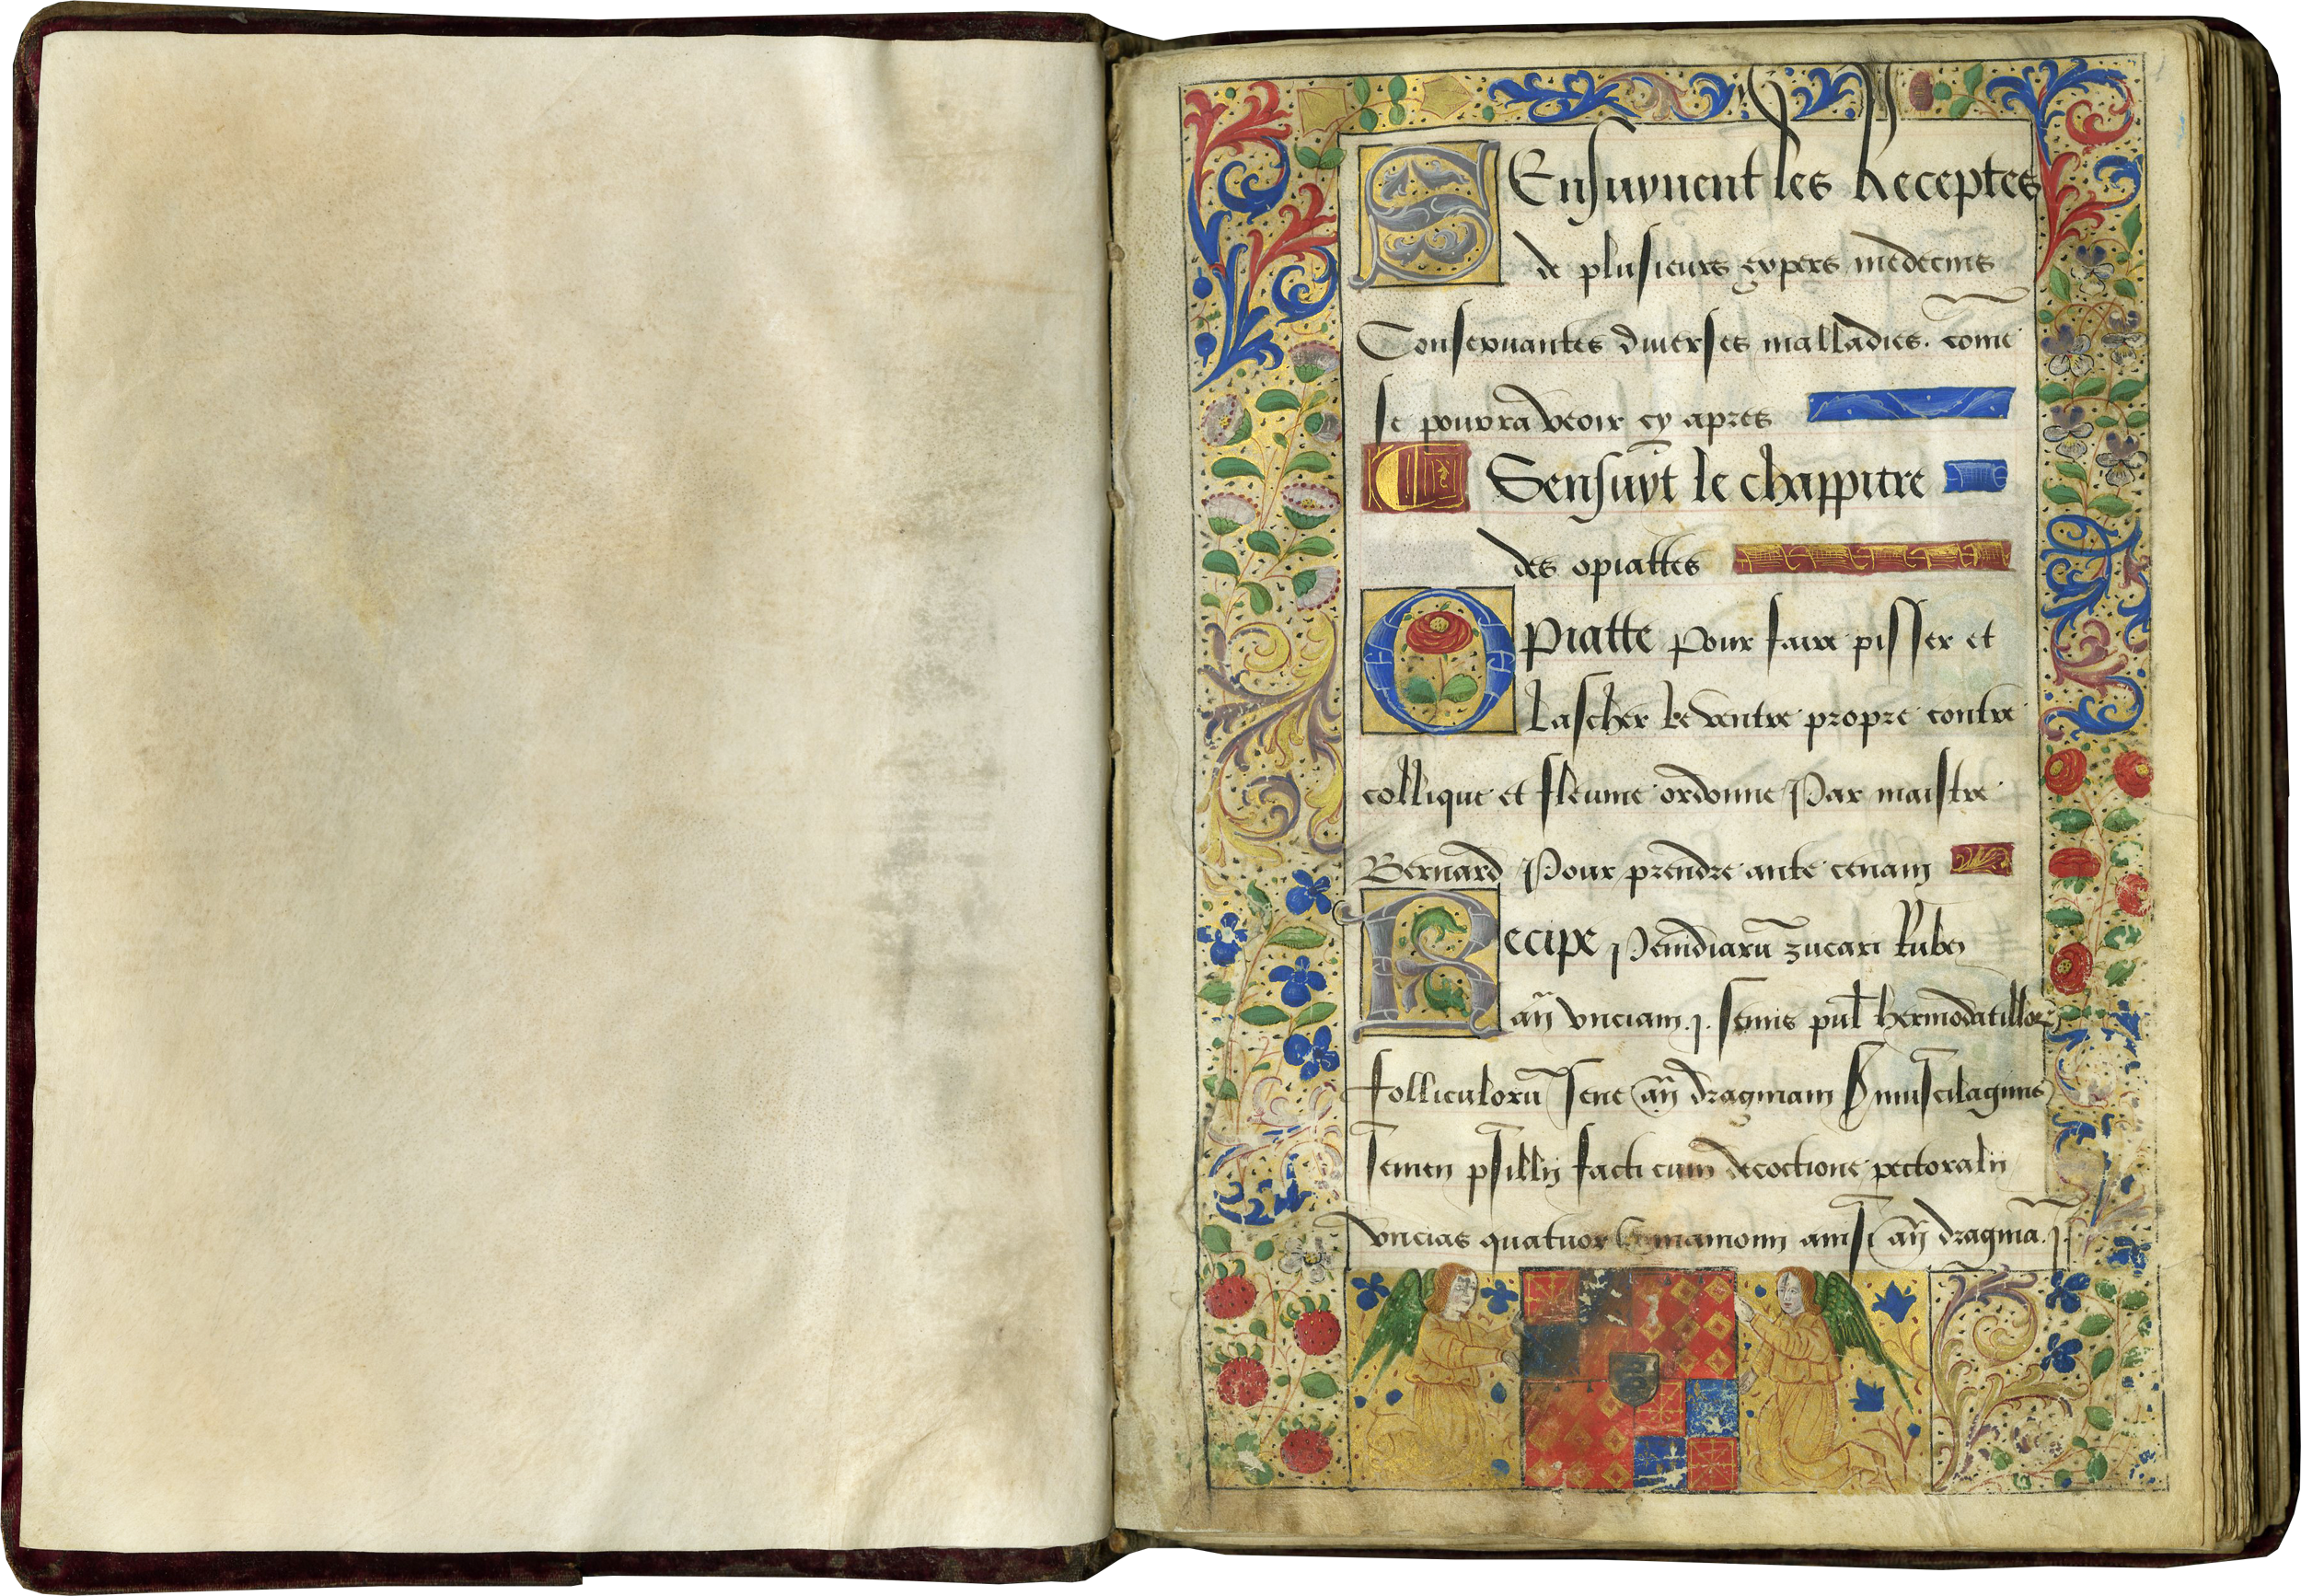 SEnsuyuent les Receptes
de plusieurs expers medecins
Conseruantes diuerses malladies. come
se pourra veoir cy apres
Sensuyt le chappitre
des opiattes
Opiatte pour faire pisser et
lascher le ventre propre contre
collique et fleume ordonne Par maistre
Bernard Pour prendre ante cenam
Recipe Penidiarū zucari Rubei
añ vnciam .j. semis pul hermodatillor
folliculorū sene añ dragmam muscilaginis
semen psillij facti cum decoctione pectoralij
vncias quatuor anisi añ dragma .j.